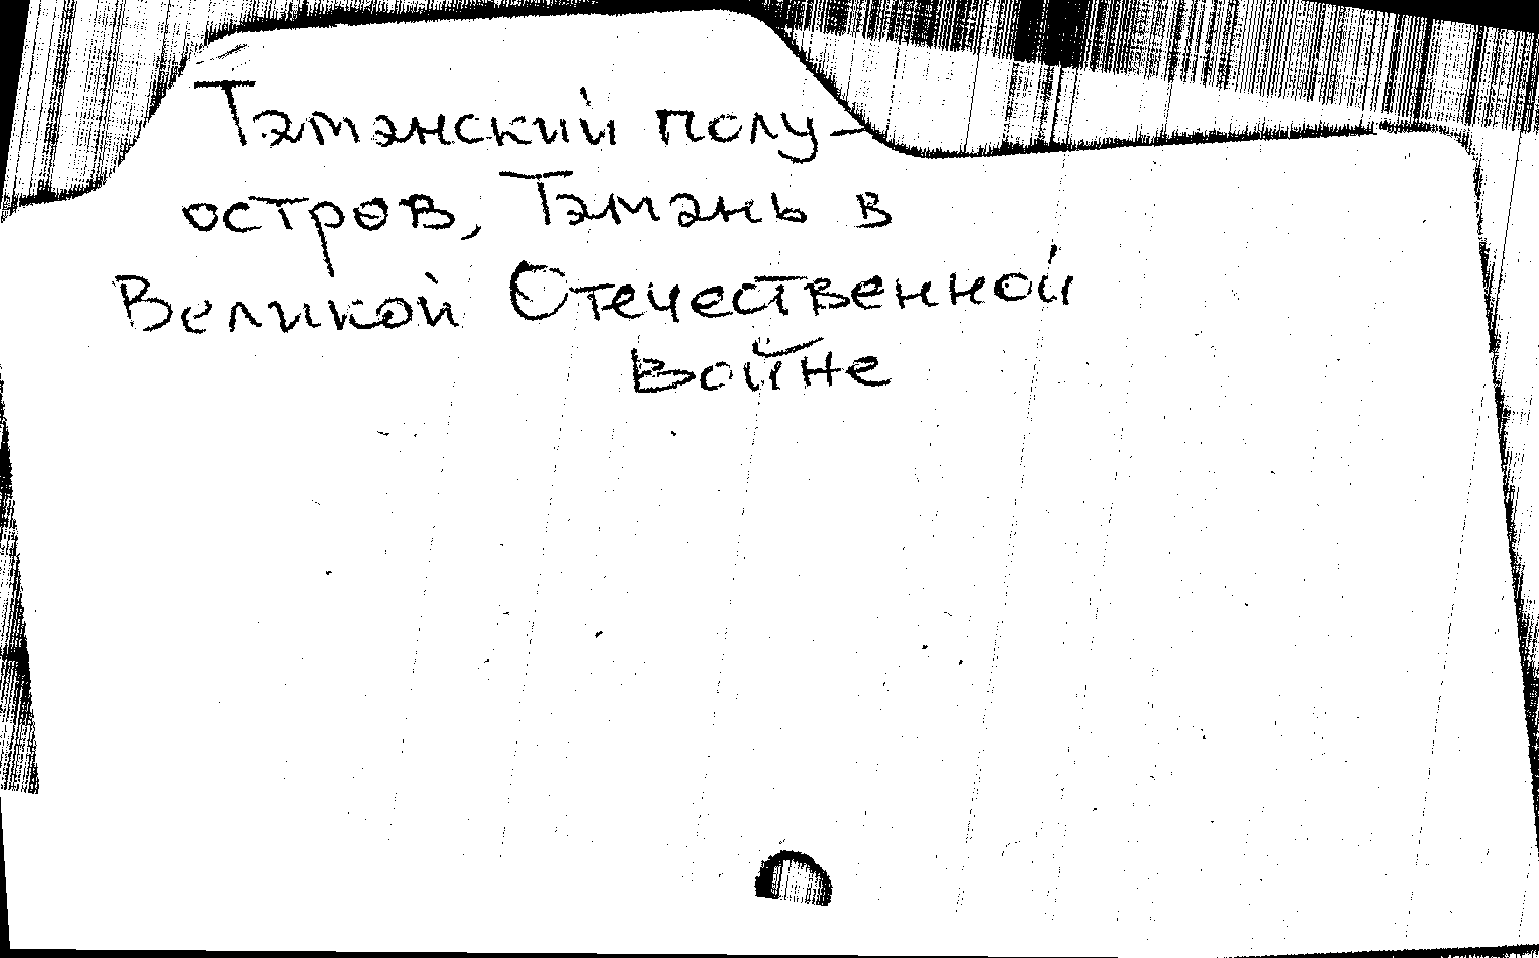 Таманский полу-
остров, Тамань в
Великой Отечественной
войне